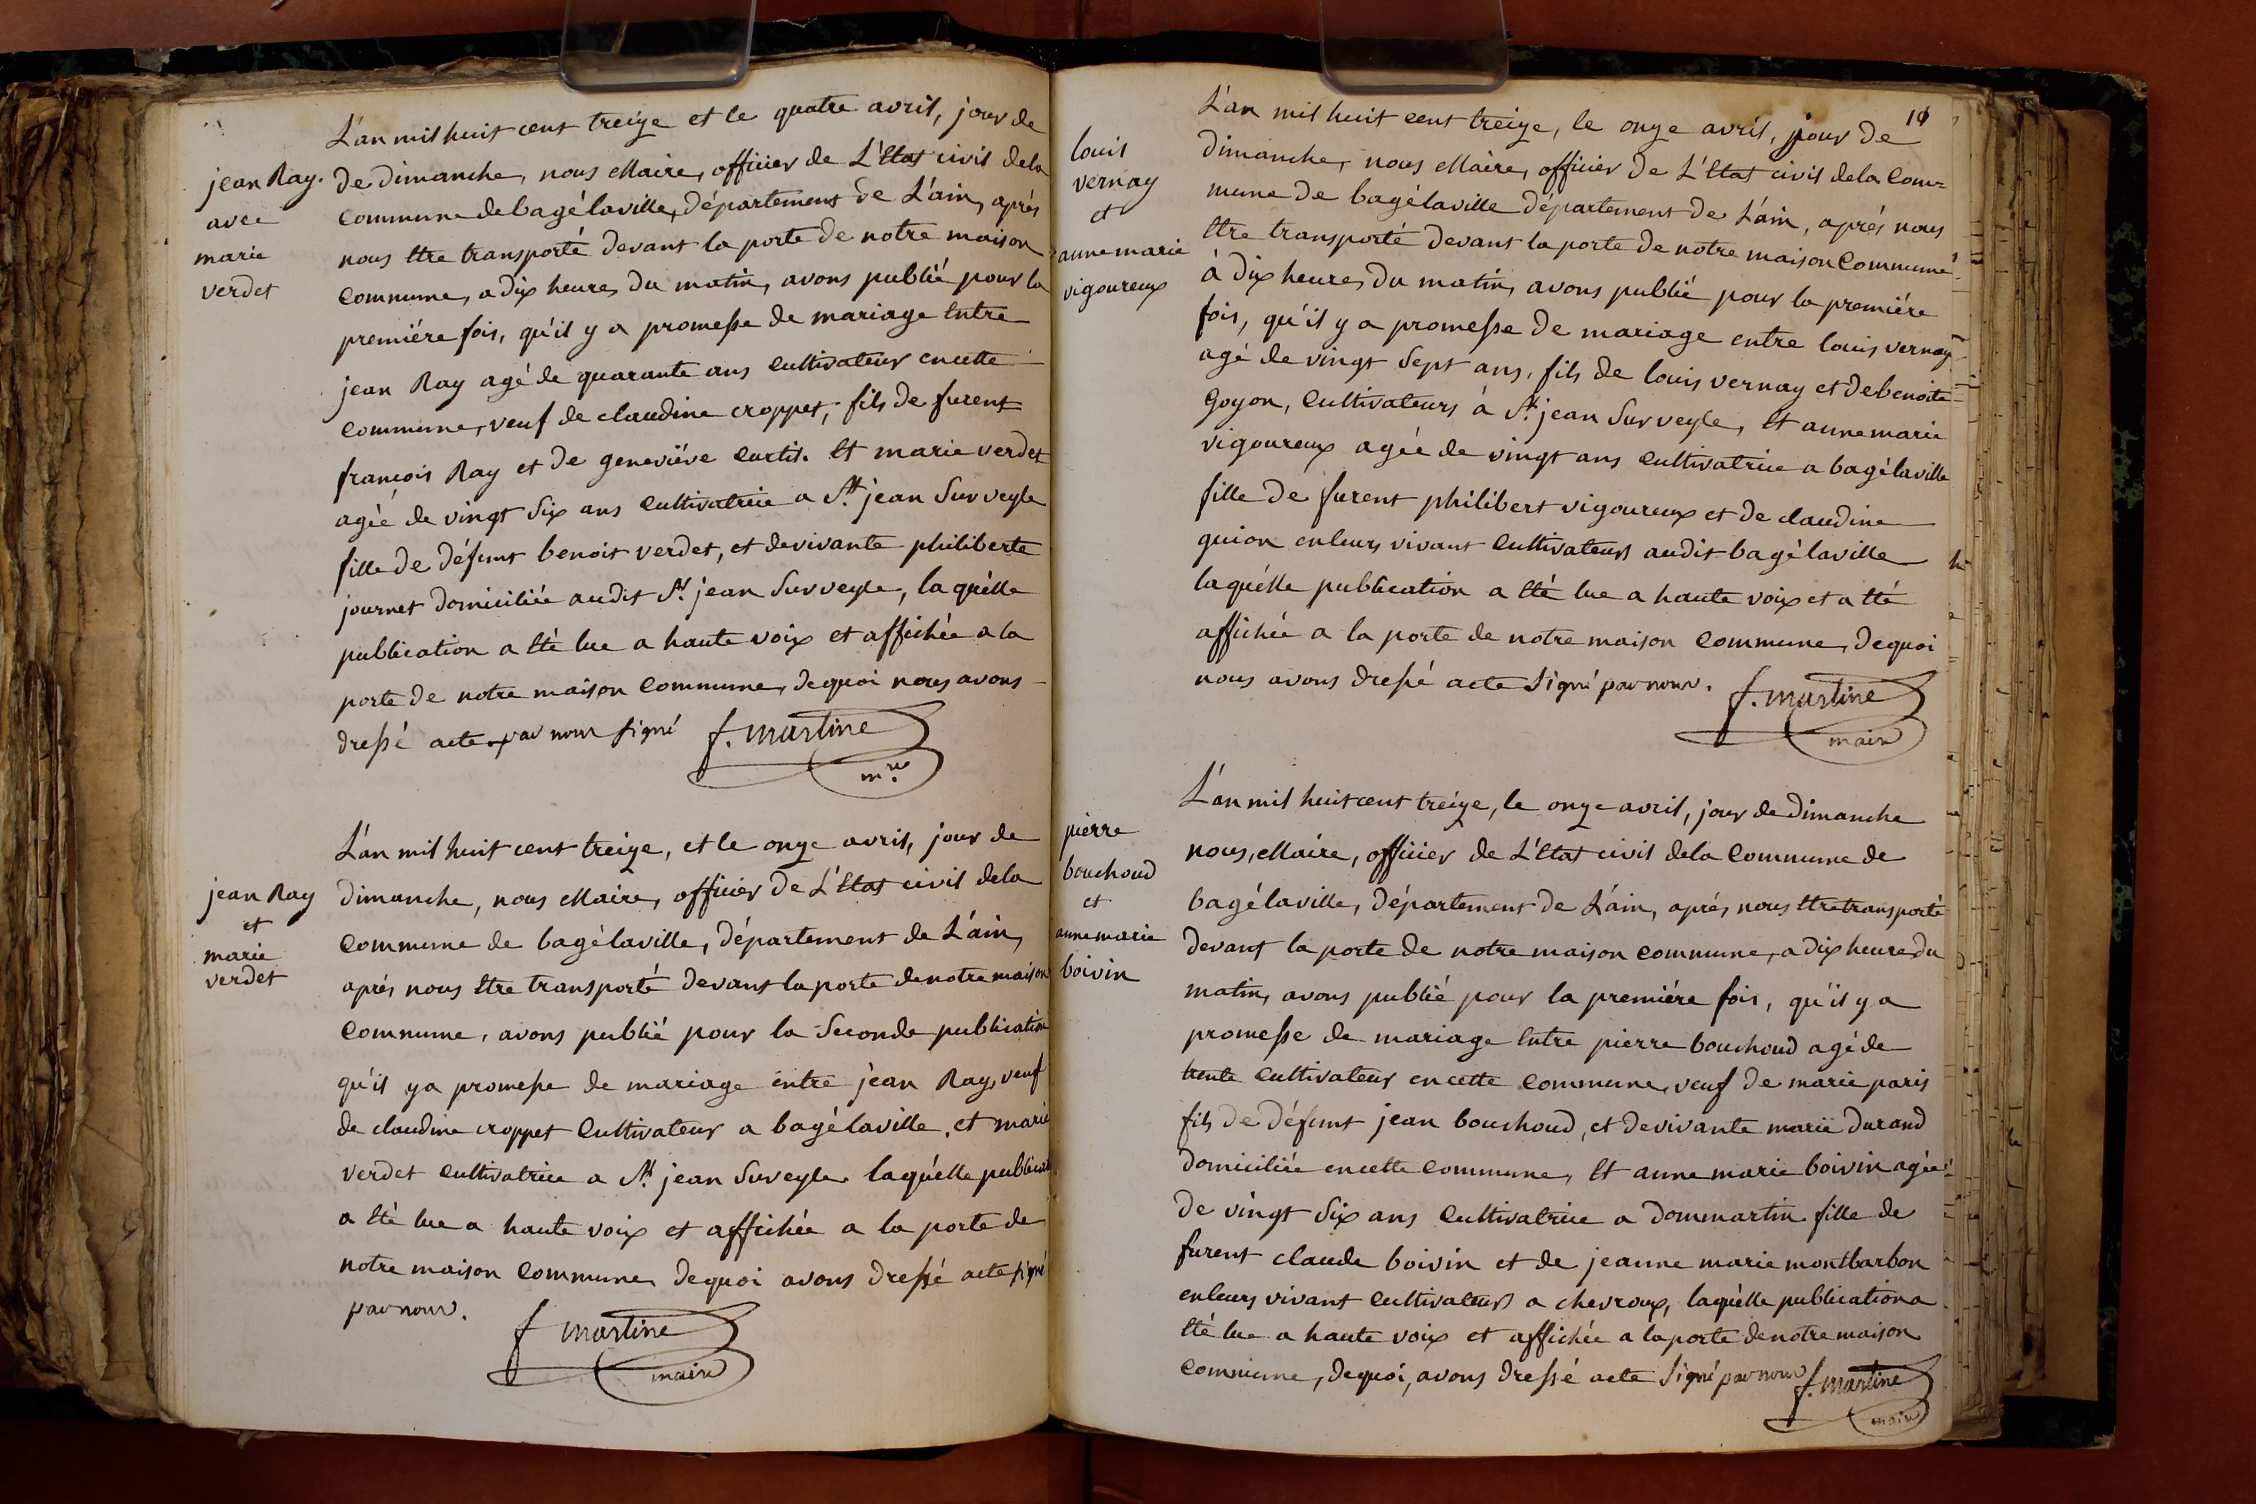 jean Ray.
avec
marie
verdet
L'an mil huit cent treize et le quatre avril, jour de
de dimanche, nous Maire, officier de L'Etat civil dela
commune debagélaville, département de L'ain, après
nous Etre transporté devant la porte de notre maison
commune, a dix heures du matin, avons publié pour la
premiére fois, qu'il y a promesse de mariage Entre
jean Ray agé de quarante ans cultivateur encette
commune, veuf de claudine croppet, fils de furent
françois Ray et de geneviéve curtil. Et marie verdet
agée de vingt Six ans cultivatrice a St. jean Sur veyle
fille de défunt benoit verdet, et devivante philiberte
journet domiciliée audit St. jean Sur veyle, laquélle
publication a Eté lue a haute voix et affichée a la
porte de notre maison commune, dequoi nous avons
dressé acte par nous signé f. martine
mre
jean Ray
et
marie
verdet
L'an mil huit cent treize, et le onze avril, jour de
dimanche, nous Maire, officier de L'Etat civil dela
commune de bagélaville, département de L'ain,
aprés nous Etre transporté devant la porte denotre maison
commune, avons publié pour la Seconde publication
qu'il ya promesse de mariage entre jean Ray, veuf
de claudine croppet cultivateur a bagélaville, et marie
verdet cultivatrice a St. jean Surveyle laquélle
a Eté lue a haute voix et affichée a la porte de
notre maison commune, dequoi avons dressé acte signé
par nous. f martine
maire
10
louis
vernay
et
anne marie
vigoureux
L'an mil huit cent treize, le onze avril, jour de
dimanche, nous Maire, officier de L'Etat civil dela com=
mune de bagélaville département de L'ain, aprés nous
Etre transporté devant la porte de notre maison commune
à dix heures du matin, avons publié pour la premiére
fois, qu'il y a promesse de mariage entre louis vernay
agé de vingt Sept ans, fils de louis vernay et debenoite
goyon, cultivateurs à St. jean Sur veyle, Et anne marie
vigoureux agée de vingt ans cultivatrice a bagélaville
fille de furent philibert vigoureux et de claudine
guion enleurs vivant cultivateurs audit bagélaville
laquélle publication a Eté lue a haute voix et a Eté
affichée a la porte de notre maison commune, dequoi
nous avons dressé acte Signé par nous. f. martine
maire
pierre
bouchoud
et
anne marie
boivin
L'an mil huit cent treize, le onze avril, jour de dimanche
nous, Maire, officier de L'Etat civil dela commune de
bagélaville, département de L'ain, aprés nous Etre transporté
devant la porte de notre maison commune, a dix heure du
matin, avons publié pour la premiére fois, qu'il y a
promesse de mariage Entre pierre bouchoud agé de
trente cultivateur encette commune, veuf de marie paris
fils de défunt jean bouchoud, et devivante marie durand
domiciliée encette commune, Et anne marie boivin agée
de vingt Six ans cultivatrice a dommartin fille de
furent claude boivin et de jeanne marie montbarbon
enleurs vivant cultivateurs a chevroux, laquélle publication a
Eté lue a haute voix et affichée a la porte denotre maison
commune, dequoi, avons dressé acte Signé par nous f. martine
maire